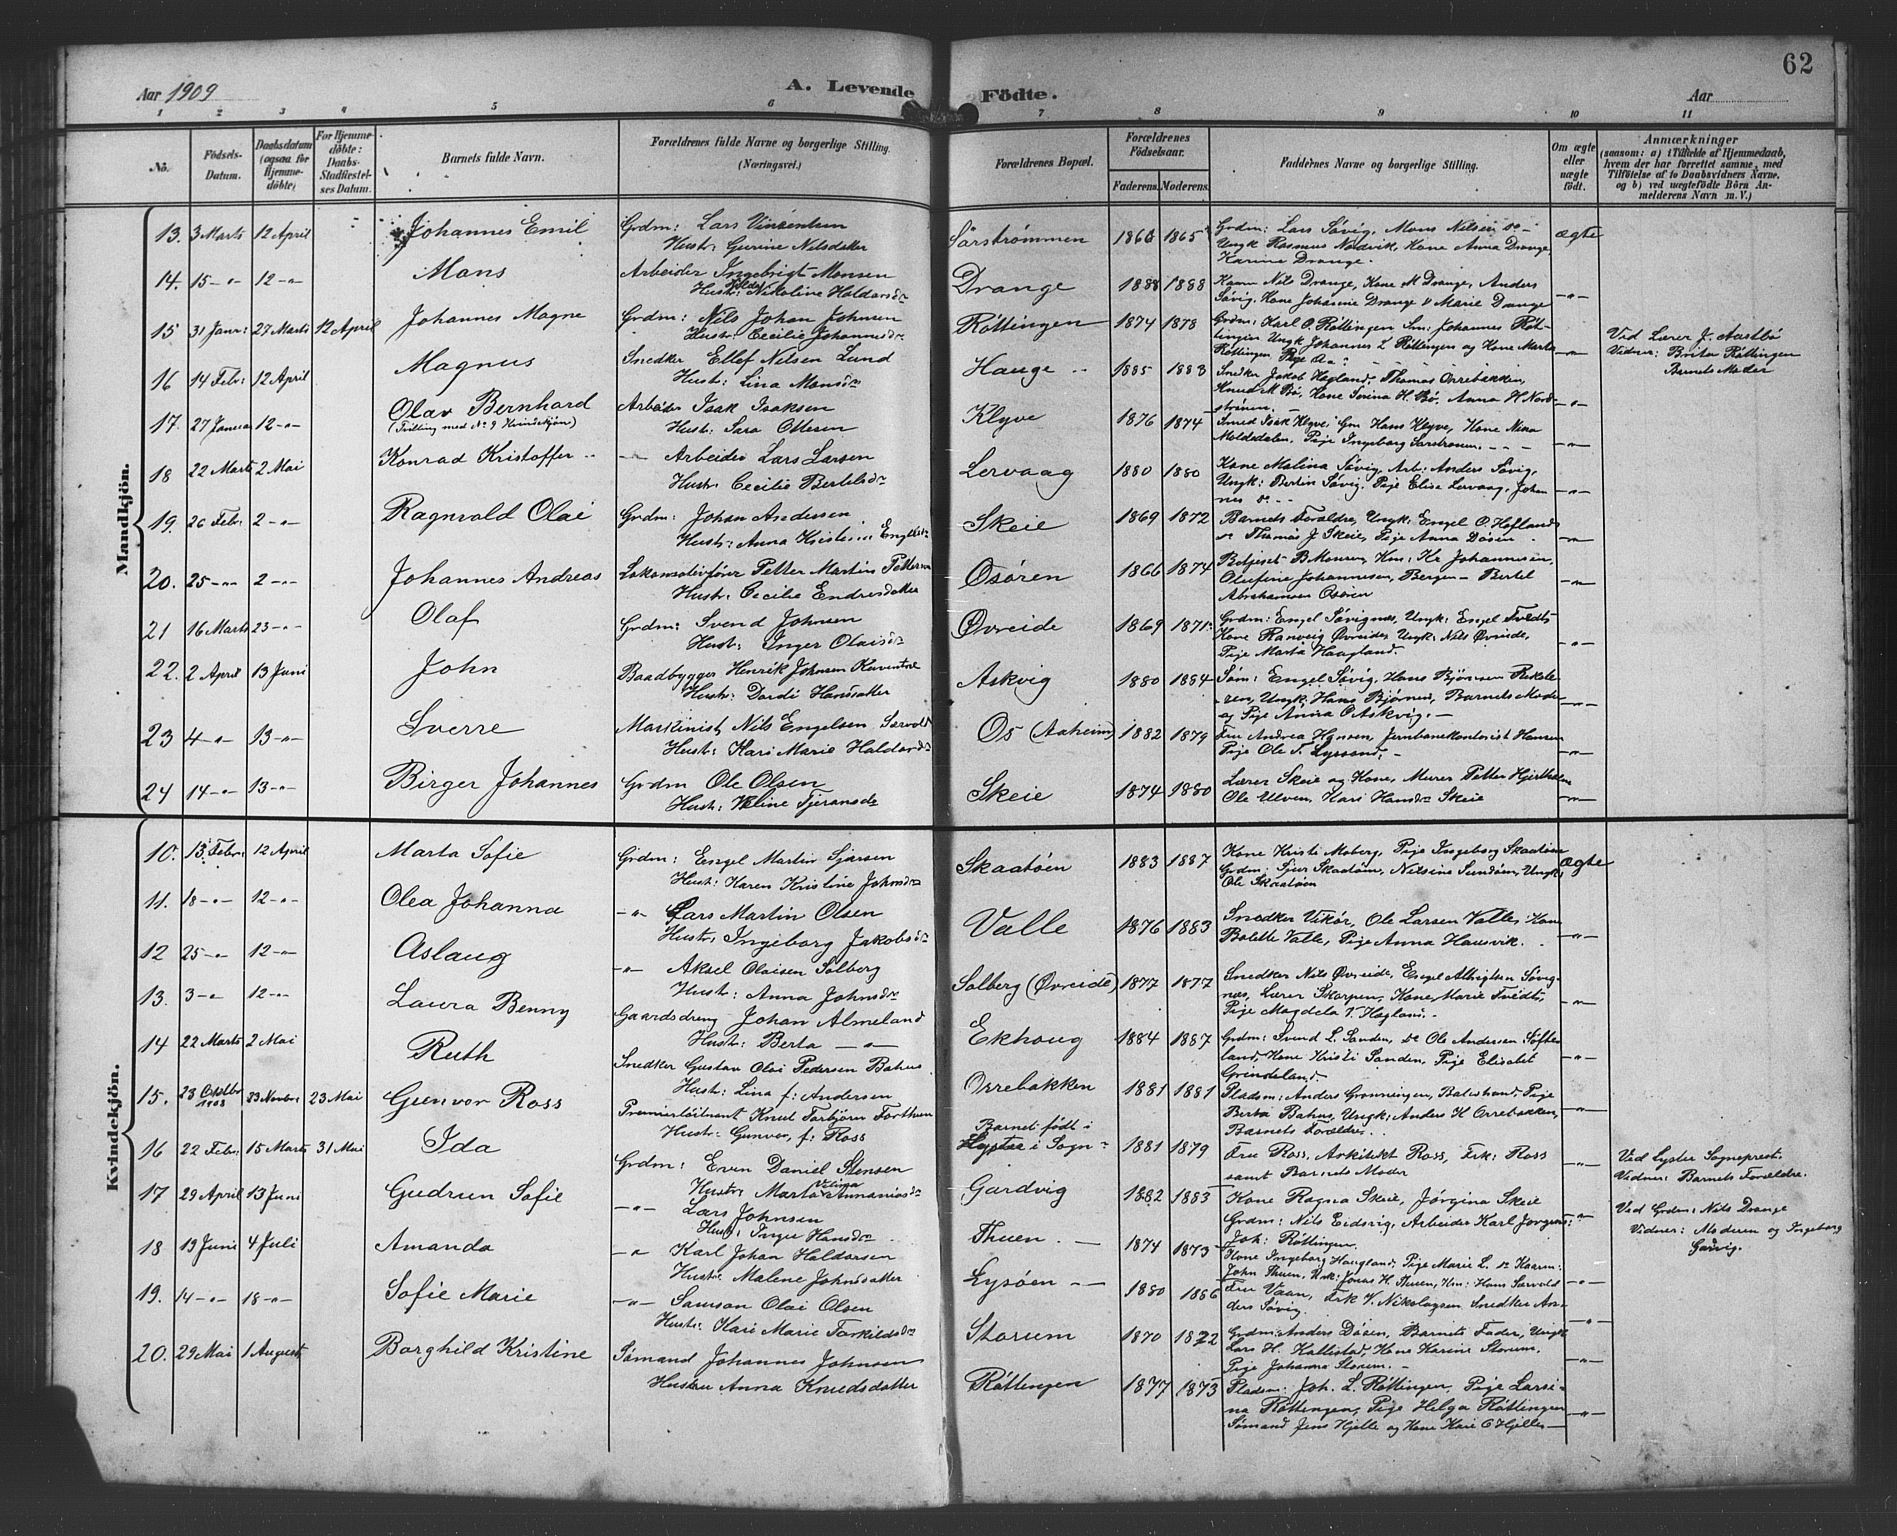 62
Aar 1909
A. Levende
Födte.
Aar
1 2 3 4 5 6 7 8 9 10 11
No.
Födsels-
Datum.
Daabsdatum
(ogsaa for
Hjemme-
döbte)
For Hjemme-
döbte:
Daabs-
Stadfæstel-
ses Datum.
Barnets fulde Navn.
Forældrenes fulde Navne og borgerlige Stilling.
(Næringsvei.)
Forældrenes Bopæl.
Forældrenes
Födselsaar.
Faderens. Moderens.
Faddernes Navne og borgerlige Stilling.
Om ægte
eller
uægte
födt.
Anmærkninger
(saasom: a) i Tilfælde af Hjemmedaab,
hvem der har forrettet samme, med
Tilföielse af to Daabsvidners Navne,
og b) ved uægtefödte Börn An-
melderens Navn m. V.)
Mandkjön.
13. 3 Marts 12 April Johannes Emil Grdm: Lars Vinzentsen
Hustr: Gurine Nilsdatter
Sörströmmen 1865
Grdm: Lars Søvig, Mons Nilsen do
Ungk Rasmus Nordvik, Kone Anna Drange,
Karine Drange.
ægte
14. 15 -"- 12 -"- Mons Arbeider Ingebrigt Monsen
Hustr: Nikoline Haldorsdr
Drange 1888 1888
Nils Drange, Kone M Drange, Anders
Søvig, Kone Johanne Drange, Marie Drange
-"-
15 31 Janr: 27 Marts 12 April Johannes Magne Grdm: Nils Johan Johnsen
Hustr: Cecilie Johannesdr
Røttingen 1874 1878
Grdm: Karl O. Røttingen Sm: Johannes Røt-
tingen Ungk Johannes L Røttingen og Kone Marta
Røttingen, Pige
-"-
Ved Lærer J. Aastbö
Vidner: Brita Røttingen
Barnets Moder
16 14 Febr: 12 April Magnus Snedker Ellef Nilsen Lund
Hustr: Lina Monsdr
Hauge 1885 1883
Snedker Jakob Hagland, Thomas Orrebakken,
Knud M Bø, Kone Serina H. Bø, Anna H Nord-
strönen
-"-
17. 27 Januar 12 -"- Olav Bernhard
(Tvilling med No 9 Kvindekjön)
Arbeider Isak Isaksen
Hustr: Sara Ottesen
Klyve 1876 1874
Smed Isak Klyve, Gm Hans Klyve, Kone Nina
Moldedalen, Pige Ingeborg Sørstrønen.
-"-
18 22 Marts 2 Mai Konrad Kristoffer Arbeider Lars Larsen
Hustr: Cecilie Bertelsdr
Lervaag 1880 1880
Kone Malina Søvig, Arb: Anders Søvig,
Ungk: Bertin Søvig, Pige Elisa Lervaag, Johan
nes do
-"-
19. 26 Febr 2 -"- Ragnvald Olai Grdm: Johan Andersen
Hustr: Anna Kristine Engelsdr
Skeie 1869 1872
Barnets Forældre, Ungk: Engel O. Hofland
do Thomas J Skeie, Pige Anna Døsen.
-"-
20. 25 -"- 2 -"- Johannes Andreas Lokomotivfører Petter Martin Pettersen
Hustr: Cecilie Endresdatter
Osören 1866 1874
Betjent B. Monsen, Km: Kr Johannesen,
Olufine Johannesen, Bergen - Bertel
Abrahamsen Osören
-"-
21 16 Marts 23 -"- Olaf Grdm: Svend Johnsen
Hustr: Inger Olaisdr
Øvreide 1869 1871
Grdm: Engel Søvignes, Ungk: Engel Tvedt,
Kone Ranveig Øvreide, Ungk: Nils Øvreide,
Pige Marta Haagland.
-"-
22. 2 April 13 Juni John Baadbygger Henrik Johnsen Kuventræ
Hustr: Dordi Hansdatter
Askvig 1880 1884
Søm: Engel Søvig, Hans Bjørnsen
Ungk: Hans Bjørnsen, Barnets Moder
og Pige Anna O Askvig.
-"-
23 4 -"- 13 -"- Sverre Maskinist Nils Engelsen Særvold
Hustr: Kari Marie Haldorsdr
Os (Aaheim) 1882 1879
Fru Andrea Hansen, Jernbanekontorist Hansen
Pige Ole T. Lyssand,
-"-
24 14 -"- 13 -"- Birger Johannes Grdm Ole Olsen
Hustr: Veline Tjeransdr
Skeie 1874 1880
Lærer Skeie og Kone, Murer Petter Hjertholm
Ole Ulven, Kari Hansdr Skeie
-"-
Kvindekjön.
10. 13 Febr: 12 April Marta Sofie Grdm: Engel Martin Sjursen
Hustr: Karen Kristine Johnsdr
Skaatøen 1883 1887
Kone Kristi Moberg, Pige Ingeborg Skaatøen
Grdm: Sjur Skaatøen, Nilsine Sundøen, Ungk:
Ole Skaatøen
ægte
11. 18 -"- 12 -"- Olea Johanna -"- Lars Martin Olsen
Hustr: Ingeborg Jakobsdr
Valle 1876 1883
Snedker Vikør, Ole Larsen Valle, Kone
Bolette Valle, Pige Anna Hausvik.
-"-
12 25 -"- 12 -"- Aslaug -"- Aksel Olaisen Solberg
Hustr: Anna Johnsdr
Solberg (Øvreide) 1877 1877
Snedker Nils Øvreide, Engel Albrigtsen Søvig-
næs, Lærer Skorpen, Kone Marie Tvedt,
Pige Magdela V. Hagland.
-"-
13. 3 -"- 12 -"- Laura Benny Gaardsdreng Johan Almeland
Hustr: Berta -"-
Ekhoug 1884 1887
Grdm: Svend L. Sanden, do Ole Andersen Søfte-
land, Kone Kristi Sanden, Pige Elisabet
Grindeland
-"-
14 22 Marts 2 Mai Ruth Snedker Gustav Olai Pedersen Bahus
Hustr: Lina f: Andersen
Orrebakken 1881 1881
Pladsm: Anders Grønningen, Balestrand, Pige
Berta Bahus, Ungk: Anders H Orrebakken,
Barnets Forældre.
-"-
15. 23 Oktbr 1908 23 Novbr 23 Mai Gunvor Ross Premierløitnant Knut Torbjörn Forthun
Hustr: Gunvor, f: Ross
Barnet født i
Lyster i Sogn 1881 1879
Fru Ross, Arkitekt Ross, Frk: Ross
samt Barnets Moder
-"-
Ved Lyster Sogneprest.
Vidner: Barnets Forældre.
16 22 Febr: 15 Marts 31 Mai Ida Grdm: Even Daniel Stensen
Hustr: Marta Velina Ananiasdr
Gardvig 1882 1883
Kone Ragna Skeie, Jørgina Skeie
Grdm: Nils Eidsvig, Arbeider Karl Jørgens:
Joh: Røttingen.
-"-
Ved Grdm: Nils Drange
Vidner: Moderen og Ingeborg
Gavig.
17 29 April 13 Juni Gudrun Sofie -"- Lars Johnsen
Hustr: Inger Hansdr
Thuen 1874 1873
Kone Ingeborg Haugland, Pige Marie L. do Kaaren,
John Thuen, Unk: Jonas H. Thuen, Km: Hans Særvold
-"-
18 13 Juni 4 Juli Amanda -"- Karl Johan Haldorsen
Hustr: Malene Johnsdatter
Lysøen 1880 1886
Fru Vaan, Frk V. Nikolaysen Snedker An-
ders Søvig.
-"-
19. 14 -"- 18 -"- Sofie Marie -"- Samson Olai Olsen
Hustr: Kari Marie Torkildsdr
Storum 1870 1872
Grdm: Anders Døsen, Barnets Fader, Ungk
Lars H. Hallestad, Kone Karine Storum,
Pige Johanna Storum.
-"-
20. 29 Mai 1 August Borghild Kristine Sømand Johannes Johnsen
Hustru Anna Knudsdatter
Røttingen 1877 1873
Pladsm: Joh. L. Røttingen, Pige Larsi-
na Røttingen, Pige Helga Røttingen
Sømand Jens Hjelle og Kone Kari O Hjelle
-"-